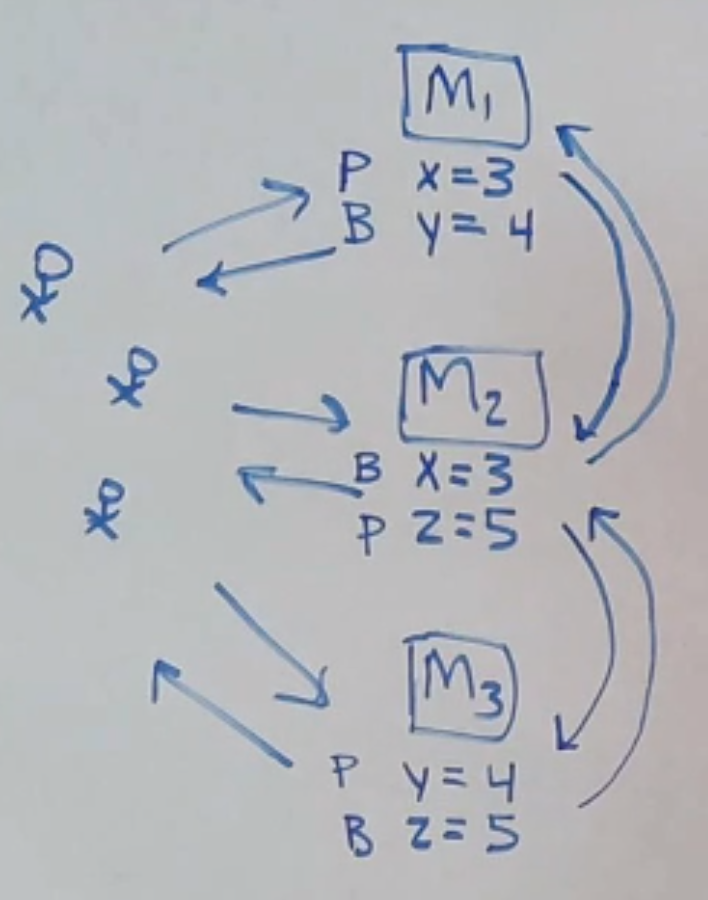 M₁
P x=3
B y=4
M₂
B x=3
P z=5
M₃
P y=4
B z=5